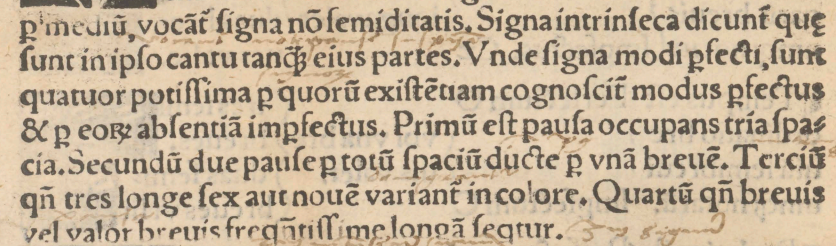 ꝑ mediū, vocāt̄ ſigna nō ſemiditatis. Signa intrinſeca dicunt̄ quę
ſunt in ipſo cantu tanqꝫ eius partes. Vnde ſigna modi ꝑfecti, ſunt
quatuor potiſſima ꝑ quorū exiſtētiam cognoſcit̄ modus ꝑfectus
& ꝑ eoꝝ abſentiā imꝑfectus. Primū eſt pauſa occupans tria ſpa⸗
cia. Secundū due pauſe ꝑ totū ſpaciū ducte ꝑ vnā breuē. Terciū
qn̄ tres longe ſex aut nouē variant̄ in colore. Quartū qn̄ breuis
vel valor breuis freqn̄tiſſime longā ſeqtur.